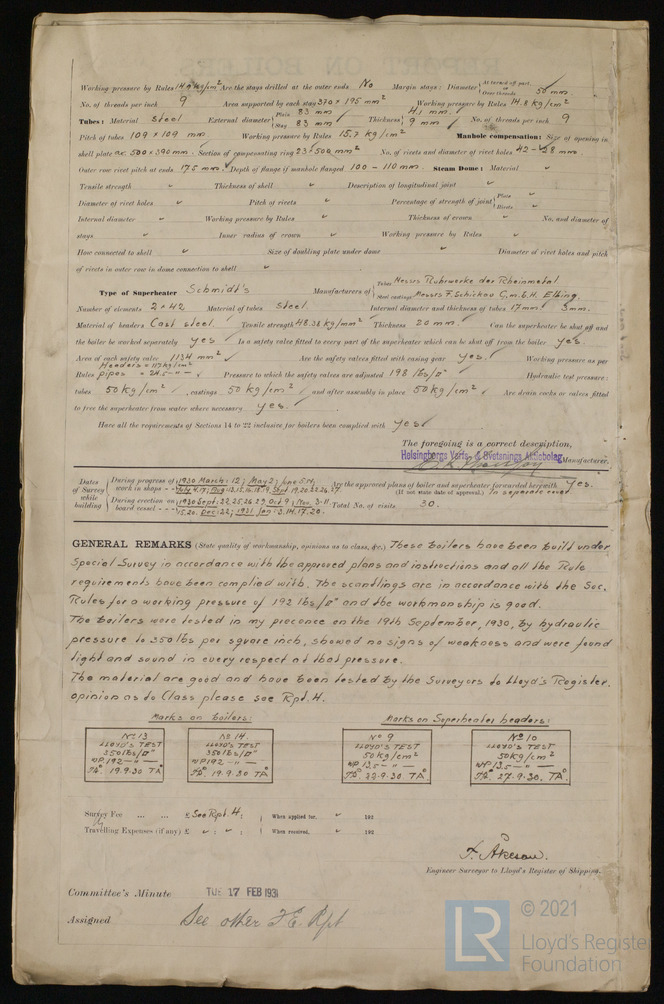 Working pressure by Rules 14.9 kg/cm² Are the stays drilled at the outer ends No Margin stays: Diameter { At turned off part, or Over threads 50 mm
No. of threads per inch 9 Area supported by each stay 370 × 195 mm² Working pressure by Rules 14.8 kg/cm²
Tubes: Material Steel External diameter { Plain 83 mm Stay 83 mm Thickness { 4.1 mm 9 mm No. of threads per inch 9
Pitch of tubes 109 × 109 mm. Working pressure by Rules 15.7 kg/cm² Manhole compensation: Size of opening in
shell plate 500 × 390 mm. Section of compensating ring 23 × 500 mm² No. of rivets and diameter of rivet holes 42 - 28 mm
Outer row rivet pitch at ends 175 mm. Depth of flange if manhole flanged 100 - 110 mm. Steam Dome: Material
Tensile strength Thickness of shell Description of longitudinal joint
Diameter of rivet holes Pitch of rivets Percentage of strength of joint { Plate Rivets
Internal diameter Working pressure by Rules Thickness of crown No. and diameter of
stays Inner radius of crown Working pressure by Rules
How connected to shell Size of doubling plate under dome Diameter of rivet holes and pitch
of rivets in outer row in dome connection to shell
Type of Superheater Schmidt's Manufacturers of { Tubes Messrs Rohrwerke der Rheinmetal Steel castings Messrs F. Schichau G.m.b.H. Elbing.
Number of elements 2 × 42 Material of tubes Steel Internal diameter and thickness of tubes 17 mm 3 mm.
Material of headers Cast steel. Tensile strength 48.38 kg/mm² Thickness 20 mm. Can the superheater be shut off and
the boiler be worked separately yes Is a safety valve fitted to every part of the superheater which can be shut off from the boiler yes.
Area of each safety valve 1134 mm² Are the safety valves fitted with easing gear yes. Working pressure as per
Rules Headers = 117 kg/cm² pipes = 24.5 - " - Pressure to which the safety valves are adjusted 198 lbs/□" Hydraulic test pressure:
tubes 50 kg/cm², castings 50 kg/cm² and after assembly in place 50 kg/cm² Are drain cocks or valves fitted
to free the superheater from water where necessary yes.
Have all the requirements of Sections 14 to 22 inclusive for boilers been complied with yes
The foregoing is a correct description,
Helsingborgs Varfs- & Svetsnings Aktiebolag Manufacturer.
Dates of Survey while building { During progress of work in shops - - 1930 March: 12; May 2; June 5
Are the approved plans of boiler and superheater forwarded herewith yes.
(If not state date of approval.) In separate cover.
During erection on board vessel - - - 1930 Sept. 22, 25, 26, 29, Oct 9; Nov. 3-11, 15, 20, Dec: 22; 1931 Jan: 3. 14. 17. 20. Total No. of visits 30.
GENERAL REMARKS (State quality of workmanship, opinions as to class, &c.) These boilers have been built under
Special Survey in accordance with the approved plans and instructions and all the Rule
requirements have been complied with. The scantlings are in accordance with the Soc.
Rules for a working pressure of 192 lbs/□" and the workmanship is good.
The boilers were tested in my precence on the 19th September, 1930, by hydraulic
pressure to 350 lbs per square inch, showed no signs of weakness and were found
tight and sound in every respect at that pressure.
The material are good and have been tested by the Surveyors to Lloyd's Register.
opinion as to Class please see Rpt. 4.
Marks on boilers: Marks on Superheater headers:
No 13 No 14. No 9 No 10
LLOYD'S TEST LLOYD'S TEST LLOYD'S TEST LLOYD'S TEST
350 lbs/□" 350 lbs/□" 50 kg/cm² 50 kg/cm²
WP 192 - " - WP 192 - " - WP 13.5 - " - WP 13.5 - " -
19.9.30 19.9.30 27.9.30 27.9.30.
Survey Fee ... ... £ See Rpt. 4: When applied for, 192
Travelling Expenses (if any) £ : : When received, 192
F. Åkeson.
Engineer Surveyor to Lloyd's Register of Shipping.
Committee's Minute TUE 17 FEB 1931
Assigned See other F.E. Rpt
LR © 2021
Lloyd's Register
Foundation